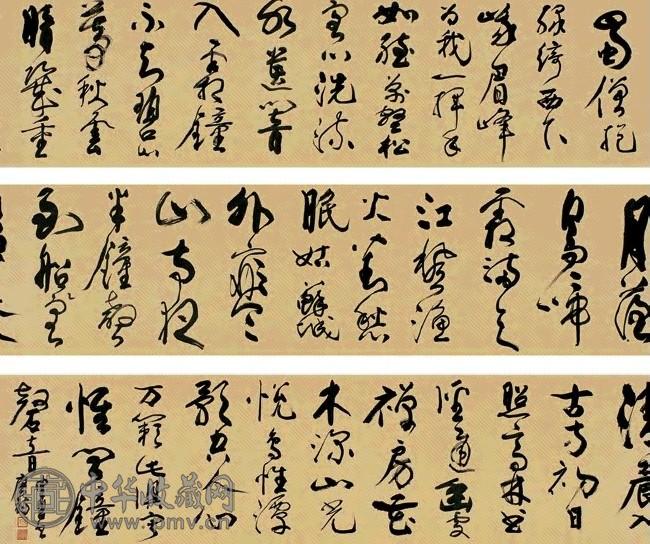 蜀僧抱
绿绮西下
峨眉峰
为我一挥手
如听万壑松
客心洗流
水響
入霜鐘
不覺碧山
暮秋雲
暗幾重
月落
烏啼
霜满天
江楓漁
火对愁
眠姑蘇城
外寒
山寺夜
半鐘聲
到船
清晨入
古寺初日
照高林曲
径通幽處
禅房花
木深山光
悦鸟性潭
影空人心
万籟此俱寂
惟闻鐘
磬音
中华收藏网
www.pmv.cn